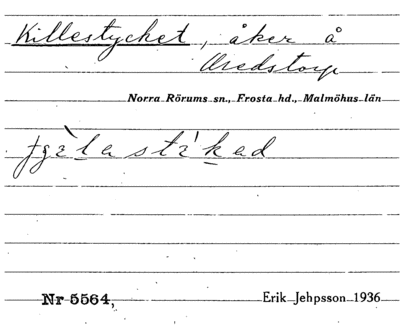 Killestycket, åker å
Uredstorp
Norra Rörums sn., Frosta hd., Malmöhus län
Nr 5564,
Erik Jehpsson 1936